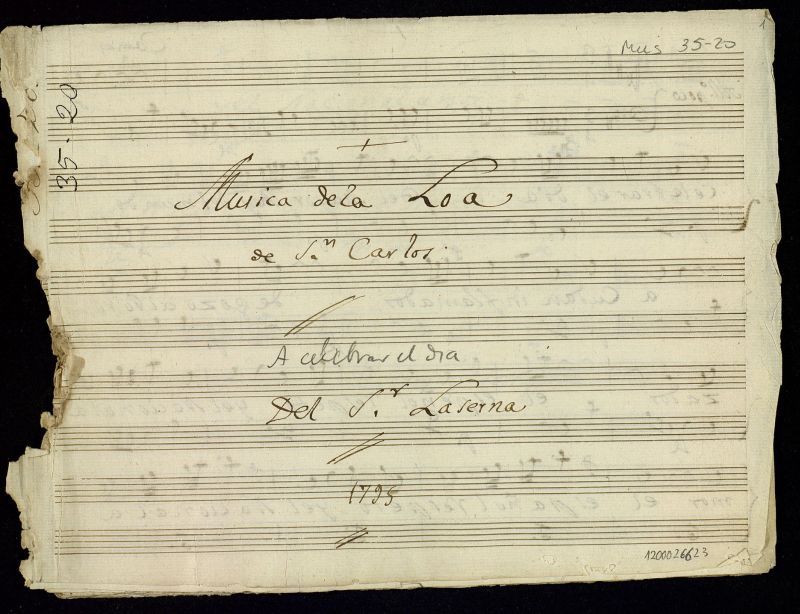 1
Mus 35-20
35-20
+
Musica de la Loa
de S.n Carlos.
A celebrar el dia
Del S.r Laserna
1795
1200026623